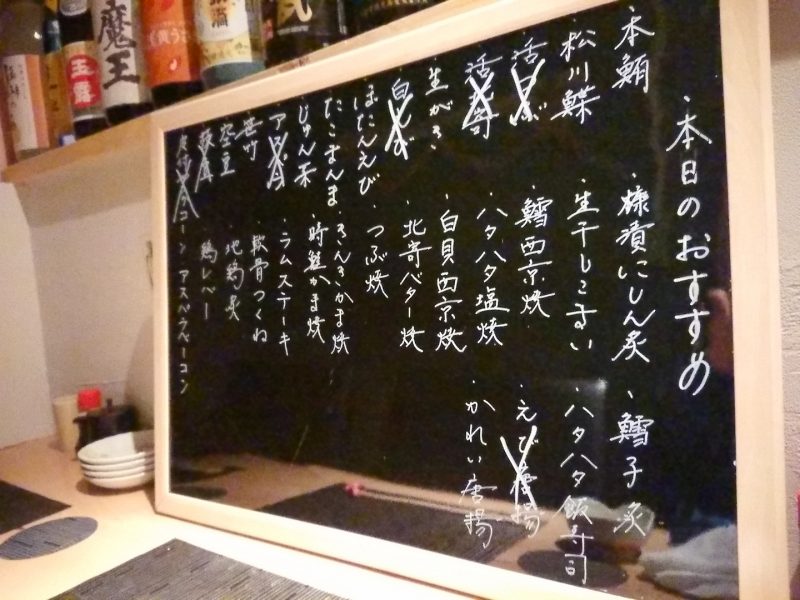 本日のおすすめ
・本鮪
・松川鰈
・生がき
・ぼたんえび
・たこまんま
・じゅん菜
・笹竹
・空豆
・糠漬にしん炙
・生干しこまい
・鱈西京焼
・ハタハタ塩焼
・白貝西京焼
・北寄バター焼
・つぶ焼
・きんきかま焼
・時鮭かま焼
・ラムステーキ
・軟骨つくね
・地鶏炙
・鶏レバー
コーン アスパラベーコン
・鱈子炙
・ハタハタ飯寿司
・えび唐揚
・かれい唐揚
魔王
玉露